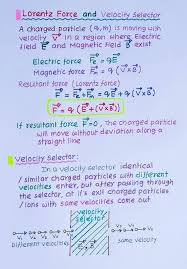 Lorentz Force and Velocity Selector
A charged particle (q,m) is moving with
velocity V⃗ in a region where Electric
field E⃗ and Magnetic field B⃗ exist
Electric force F⃗e = qE⃗
Magnetic force F⃗m = q(V⃗×B⃗)
Resultant force (Lorentz force)
F⃗ = F⃗e + F⃗m = qE⃗ + q(V⃗×B⃗)
F⃗ = q(E⃗ + (V⃗×B⃗))
If resultant force F⃗=0, the charged particle
will move without deviation along a
straight line
Velocity Selector:
In a velocity selector identical
/ similar charged particles with different
velocities enter, but after passing through
the selector, all it's exit charged particles
/ ions with same velocities come out
velocity
selector
V1 V2 V3
V V V
Different velocities
same velocity